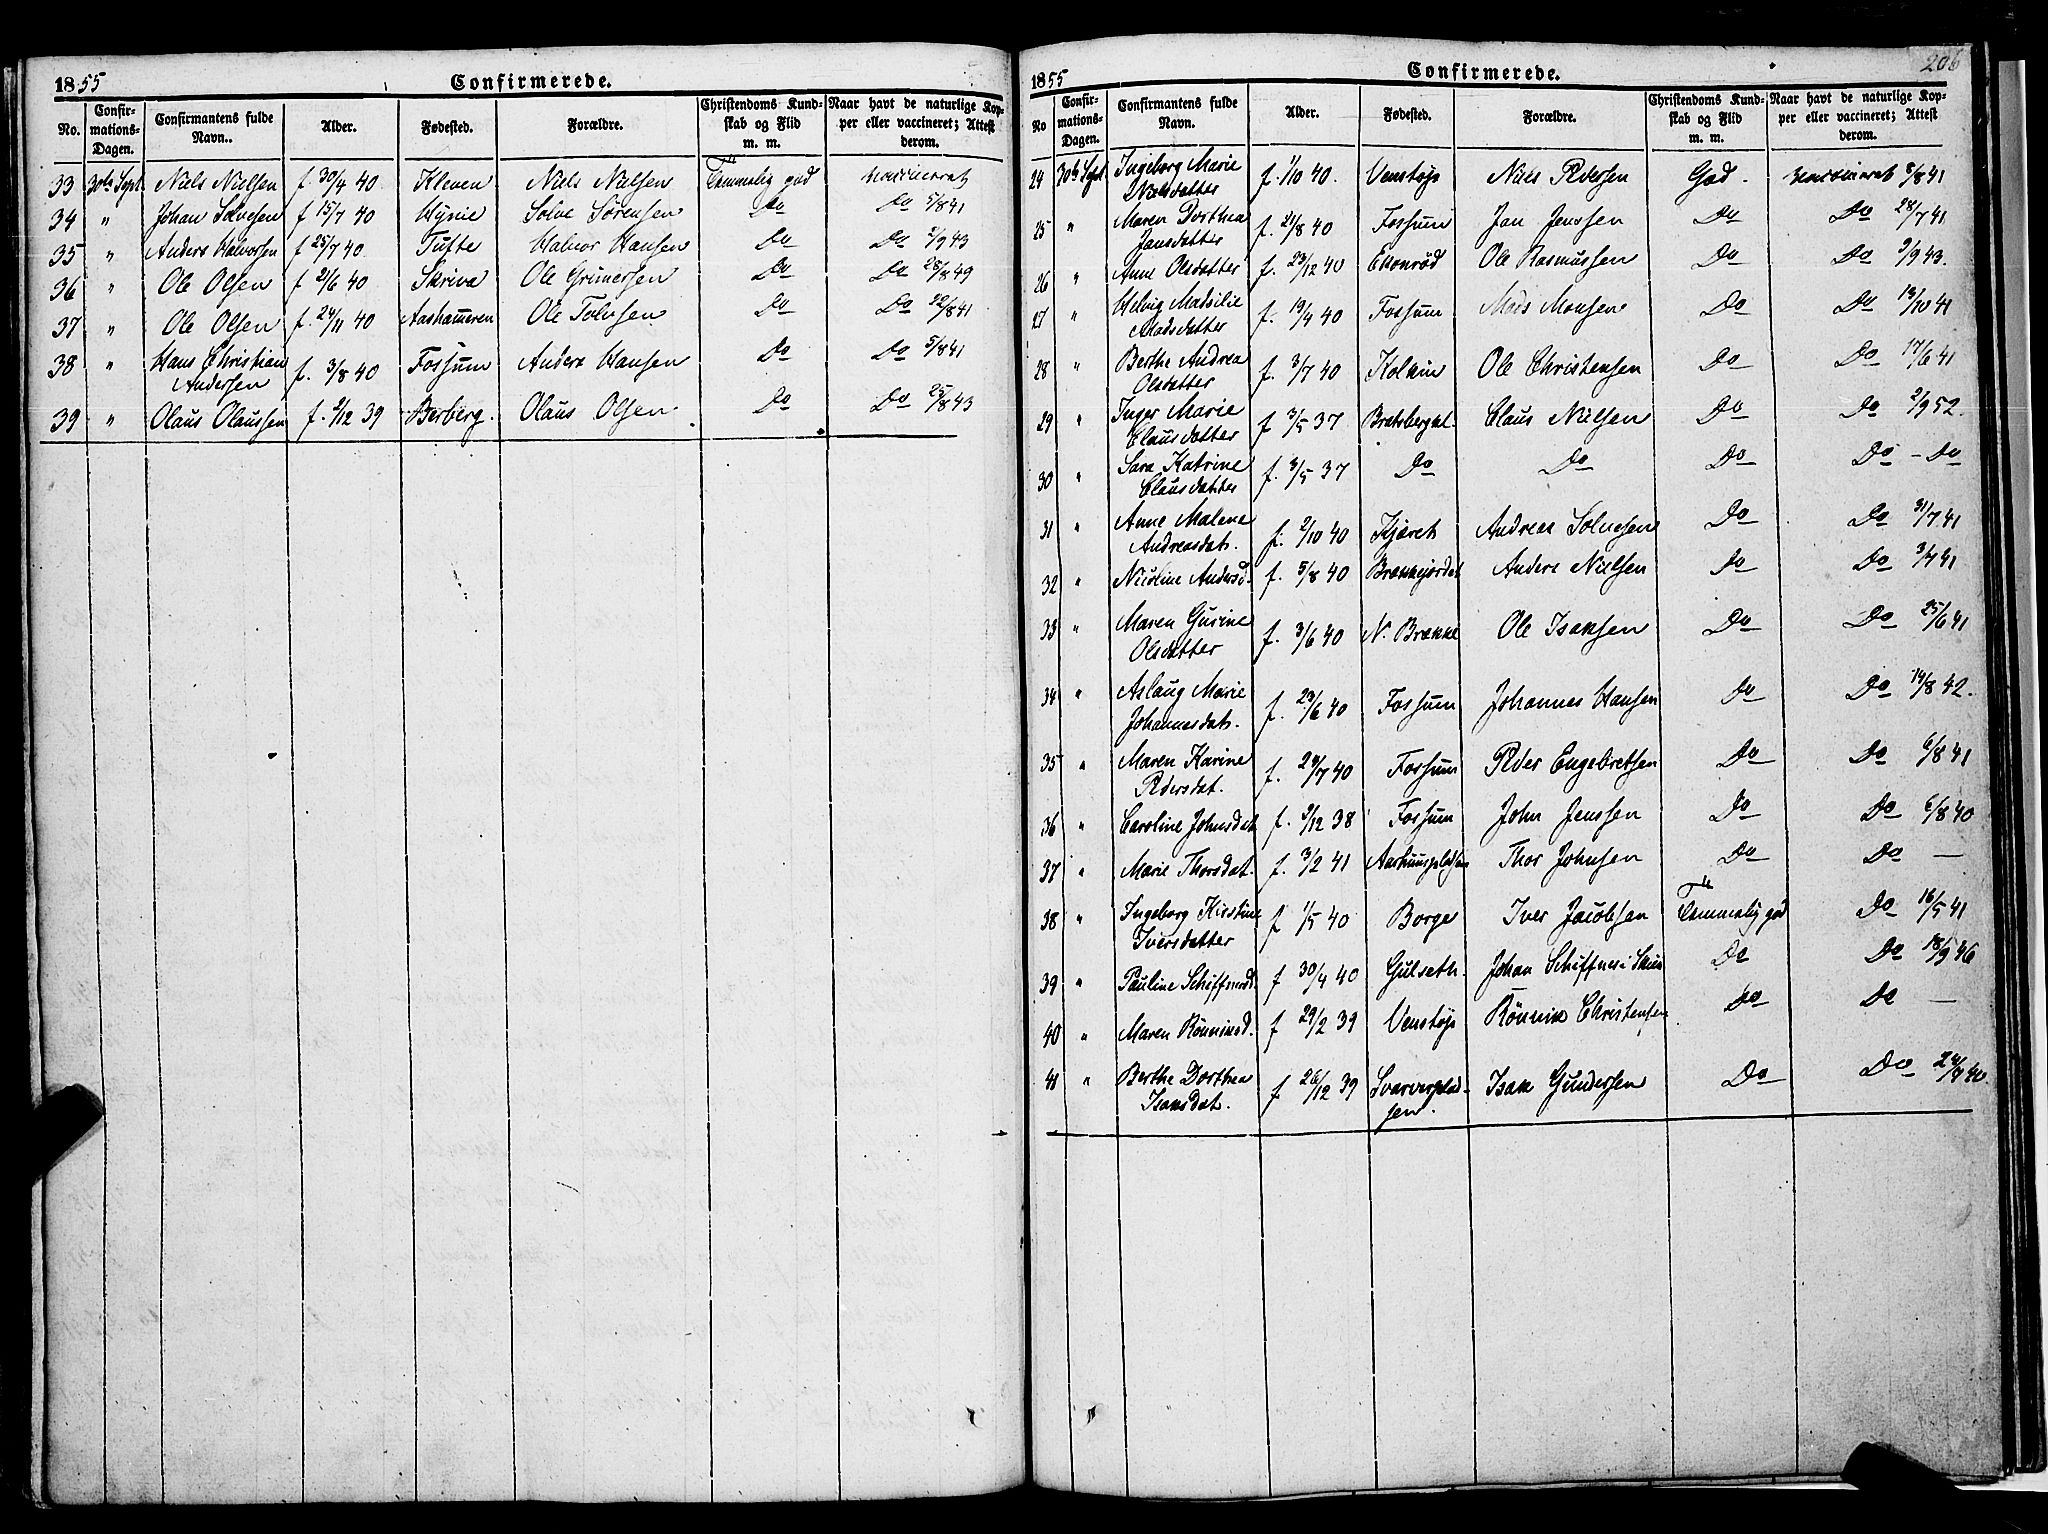 1855 Confirmerede.
No. Confirmations-Dagen. Confirmantens fulde Navn.. Alder. Fødested. Forældre. Christendoms Kundskab og Flid m. m. Naar havt de naturlige Kopper eller vaccineret; Attest derom.
33 30te Sept Niels Nielsen f. 30/4 40 Kleven Niels Nielsen Temmelig god vaccineret
34 " Johan Sølvesen f 15/7 40 Hynie Sølve Sørensen Do Do 5/8 41
35 " Anders Halvorsen f 25/7 40 Tufte Halvor Hansen Do Do 2/9 43
36 " Ole Olsen f 21/6 40 Skriva Ole Grunersen Do Do 28/8 49
37 " Ole Olsen f. 24/11 40 Aashammeren Ole Tolvsen Do Do 22/8 41
38 " Hans Christian
Andersen f. 3/8 40 Fossum Anders Hansen Do Do 5/8 41
39 " Olaus Olaussen f. 2/12 39 Berberg. Olaus Olsen Do Do 25/8 43
206
1855 Confirmerede.
No Confirmations-Dagen. Confirmantens fulde Navn. Alder. Fødested. Forældre. Christendoms Kundskab og Flid m. m. Naar havt de naturlige Kopper eller vaccineret; Attest derom.
24 30te Sept Ingeborg Marie
Nielsdatter f. 1/10 40. Venstøp Niels Pedersen God. vaccineret 8/8 41
25 " Maren Dorthea
Jansdatter f. 21/8 40 Fossum Jan Jenssen Do Do 28/7 41
26 " Anne Olsdatter f. 29/12 40 Ekonrød Ole Rasmussen Do Do 2/9 43.
27 " Helvig Matsilie
Madsdatter f. 19/4 40 Fossum Mads Monsen Do Do 13/10 41
28 " Berthe Andrea
Olsdatter f. 3/7 40 Kolkin Ole Christensen Do Do 17/6 41
29 " Inger Marie
Clausdatter f 3/5 37 Bratsbergkl. Claus Nielsen Do Do 2/9 52.
30 " Sara Katrine
Clausdatter f. 3/5 37 Do Do Do Do - Do
31 " Anne Malene
Andreasdatr. f. 2/10 40 Kjæret Andreas Solvesen Do Do 31/7 41
32 " Nicoline Andersd. f. 5/8 40 Brækkejordet Anders Nielsen Do Do 3/7 41
33 " Maren Gurine
Olsdatter f. 3/6 40 N. Brække Ole Isaksen Do Do 25/6 41
34 " Aslaug Marie
Johannesdatr. f. 23/6 40 Fossum Johannes Hansen Do Do 14/8 42.
35 " Maren Karine
Pedersdat. f. 29/7 40 Fossum Peder Engebretsen Do Do 6/8 41
36 " Caroline Johnsdat f. 2/12 38 Fossum John Jenssen Do Do 6/8 40
37 " Marie Thorsdat. f. 3/2 41 Aarhuuspladsen Thor Johnsen Do Do —
38 " Ingeborg Kirstine
Iversdatter f 1/5 40 Borge Iver Jacobsen Temmelig god Do 16/5 41
39 " Pauline Schiffnesd. f 30/4 40 Gulseth. Johan Schiffnes i Skien Do Do 18/9 46
40 " Maren Rönniksd. f 29/2 39 Venstøp Rönnik Christensen Do Do —
41 " Berthe Dorthea
Isaksdat. f 26/12 39 Svarverplad-
sen. Isak Gundersen Do Do 24/9 40.